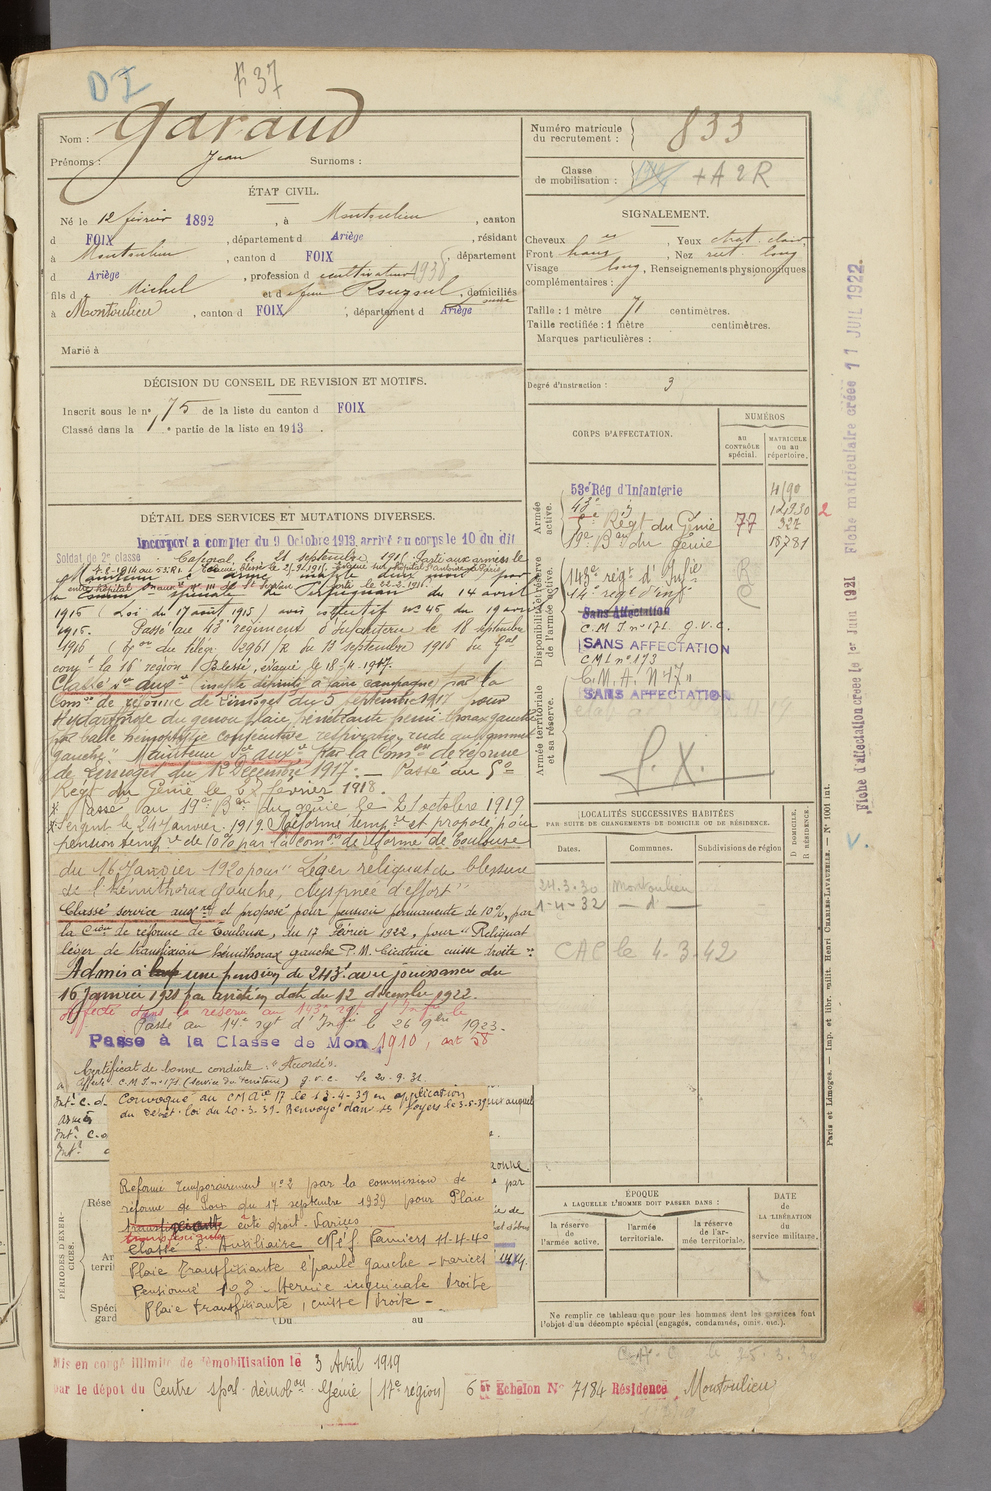 DI
F 37
Nom : Garaud
Prénoms : Jean Surnoms :
ÉTAT CIVIL.
Né le 12 février 1892, à Montoulieu, canton
d FOIX, département d Ariège, résidant
à Montoulieu, canton d FOIX, département
d Ariège, profession d cultivateur 1938
fils d Michel et d domiciliés
à Montoulieu, canton d FOIX, département d Ariège
Marié à
DÉCISION DU CONSEIL DE REVISION ET MOTIFS.
Inscrit sous le n° 75 de la liste du canton d FOIX
Classé dans la 1e partie de la liste en 1913.
DÉTAIL DES SERVICES ET MUTATIONS DIVERSES.
Incorporé a compter du 9 Octobre 1913, arrivé au corps le 10 du dit
Soldat de 2e classe Caporal le 21 septembre 1915
du 14 avril
1915 (Loi du 17 août 1915) avis collectif n° 45 du 19 avril
1915. Passé au 43e régiment d'Infanterie le 18 septembre
1916 du 13 septembre 1916 du Gal
comt la 16e région Blessé, évacué le 18-4-1917.
Classé sce auxre (inapte définitif à faire campagne) par la
Comon de réforme de Limoges du 5 septembre 1917 pour
Hydarthrose du genou plaie pénétrante hémi-thorax gauche
par balle hémoptysie consécutive respiration rude au sommet
gauche". Maintenu sce auxre par la Comon de réforme
de Limoges du 12 Décembre 1917. — Passé au 6e
Régt du Génie le 27 février 1918.
Passé au 19e Bon du génie le 21 octobre 1919
Sergent le 24 Janvier 1919. Réformé tempre et proposé pour
pension tempre de 10% par la Comon de réforme de Toulouse
du 16 Janvier 1920 pour "Léger reliquat de blessure
de l'hémithorax gauche, dyspnée d'effort"
Classé service auxre et proposé pour pension permanente de 10%, par
la Cion de réforme de Toulouse, du 17 Février 1922, pour "Reliquat
léger de transfixion hémithorax gauche P.M. Cicatrice cuisse droite"
Admis à une pension de 243f avec jouissance du
16 Janvier 1921 par arrêté en date du 12 décembre 1922.
Affecté dans la réserve au 143e rgt d'Infie le
Passé au 14e rgt d'Infie le 26 9bre 1923.
Passé à la Classe de Mon 1910, art 58
Certificat de bonne conduite : "Accordé".
Affecté C.M.I. n° 171 (service du territoire) g.v.c. le 20.9.31.
Convoqué au CMA 17 le 13-4-39 en application
du Décret-loi du 20-3-39. Renvoyé dans ses foyers le 3-5-39
Réformé Temporairement n° 2 par la commission de
réforme de du 17 septembre 1939 pour Plaie
transfixiante côté droit - Varices
Classé S. Auxiliaire Pamiers 11-4-40
Plaie Transfixiante épaule gauche - varices
Pensionné Hernie inguinale droite
Plaie transfixiante, cuisse droite -
PÉRIODES D'EXERCICES.
Du au
Mis en congé illimité de démobilisation le 3 Avril 1919
par le dépot du Centre spal démobon Génie (17e région) 6 Echelon No 7184 Résidence Montoulieu
Numéro matricule du recrutement : 833
Classe de mobilisation : +A 2 R
SIGNALEMENT.
Cheveux , Yeux chat. clair,
Front haut , Nez rect. long
Visage long, Renseignements physionomiques
complémentaires :
Taille : 1 mètre 71 centimètres.
Taille rectifiée : 1 mètre centimètres.
Marques particulières :
Degré d'instruction : 3
CORPS D'AFFECTATION.
NUMÉROS
au CONTRÔLE spécial.
MATRICULE ou au répertoire.
Armée active.
53e Rég d'Infanterie 4190
43e d° 12930 2
6e Régt du Génie 77 327
19e Bon du Génie 18781
Disponibilité et réserve de l'armée active.
143e régt d'Infie
14e régt d'inf
Sans Affectation
C.M.I. n° 171. g.v.c.
SANS AFFECTATION
CMI n° 173
Armée territoriale et sa réserve.
C.M.A. N° 17
SANS AFFECTATION
LOCALITÉS SUCCESSIVES HABITÉES
PAR SUITE DE CHANGEMENTS DE DOMICILE OU DE RÉSIDENCE.
Dates. Communes. Subdivisions de région D DOMICILE, R RÉSIDENCE.
24.3.30 Montoulieu
1-4-32 — d° —
CAC le 4-3-42
ÉPOQUE
A LAQUELLE L'HOMME DOIT PASSER DANS :
la réserve de l'armée active. l'armée territoriale. la réserve de l'armée territoriale.
DATE DE LA LIBÉRATION du service militaire.
Ne remplir ce tableau que pour les hommes dont les services font
l'objet d'un décompte spécial (engagés, condamnés, omis, etc.).
Fiche d'affectation créée le 1er Juin 1921 Fiche matriculaire créée 11 JUIL 1922.
Paris et Limoges. — Imp. et libr. milit. Henri CHARLES-LAVAUZELLE. — N° 1001 int.